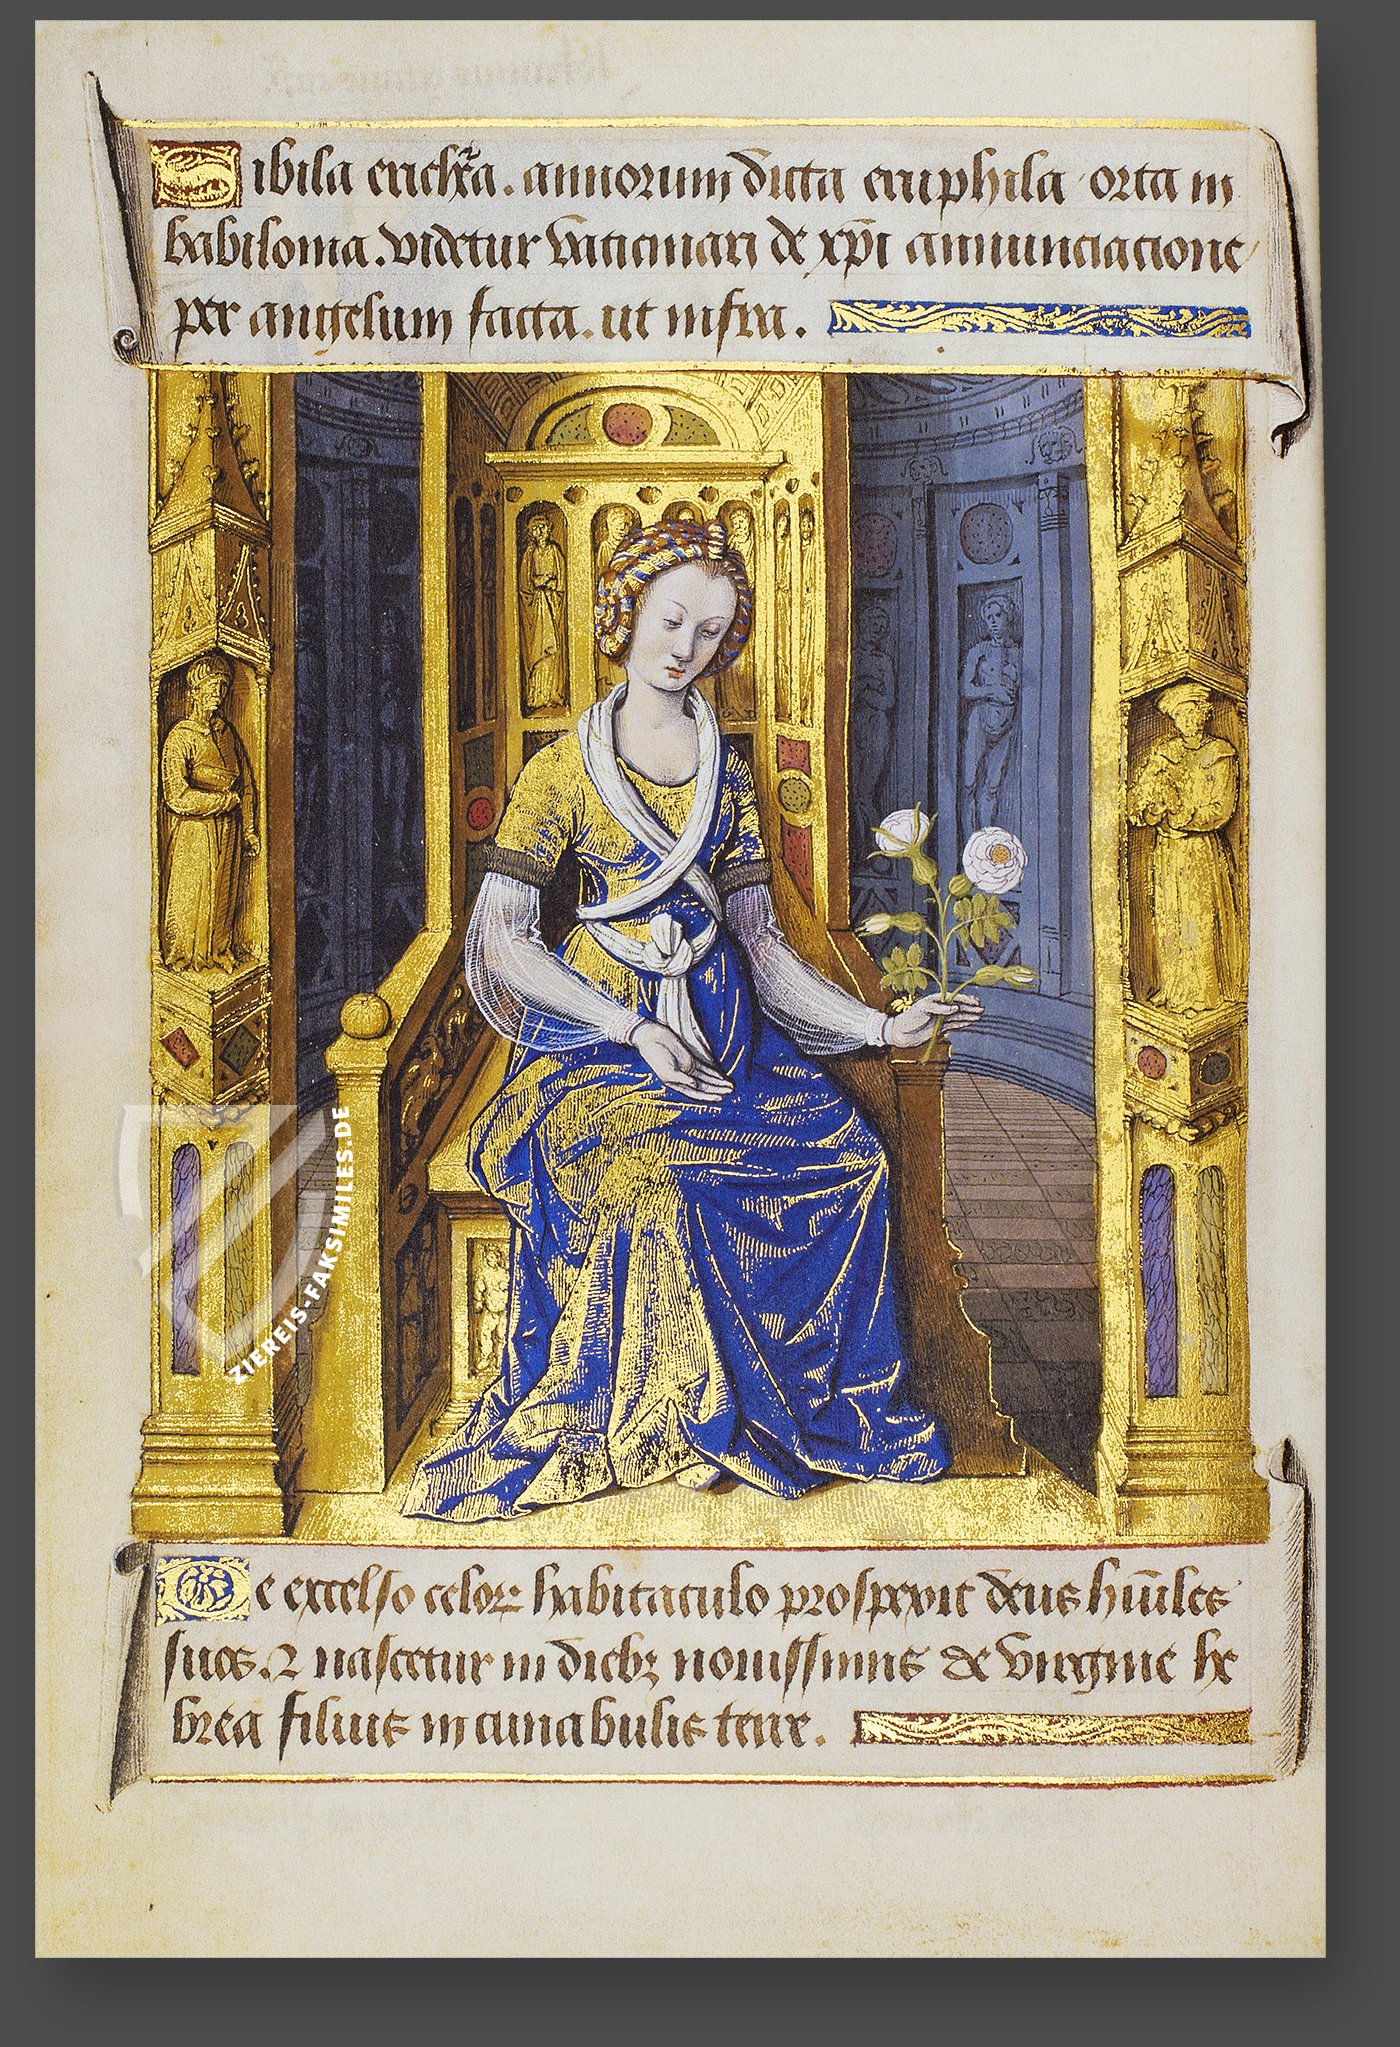 Sibila erichꝛ̃a. annorum dicta eriiphila orta in
babilonia. videtur vaticinari de xp̄i annunciacione
per angelum facta. ut infra.
De excelso celoꝝ habitaculo prospexit deus hūiles
suos. ⁊ nascetur in diebꝫ nouissimis de virgine he
brea filius in cunabulis terre.
ZIEREIS-FAKSIMILES.DE